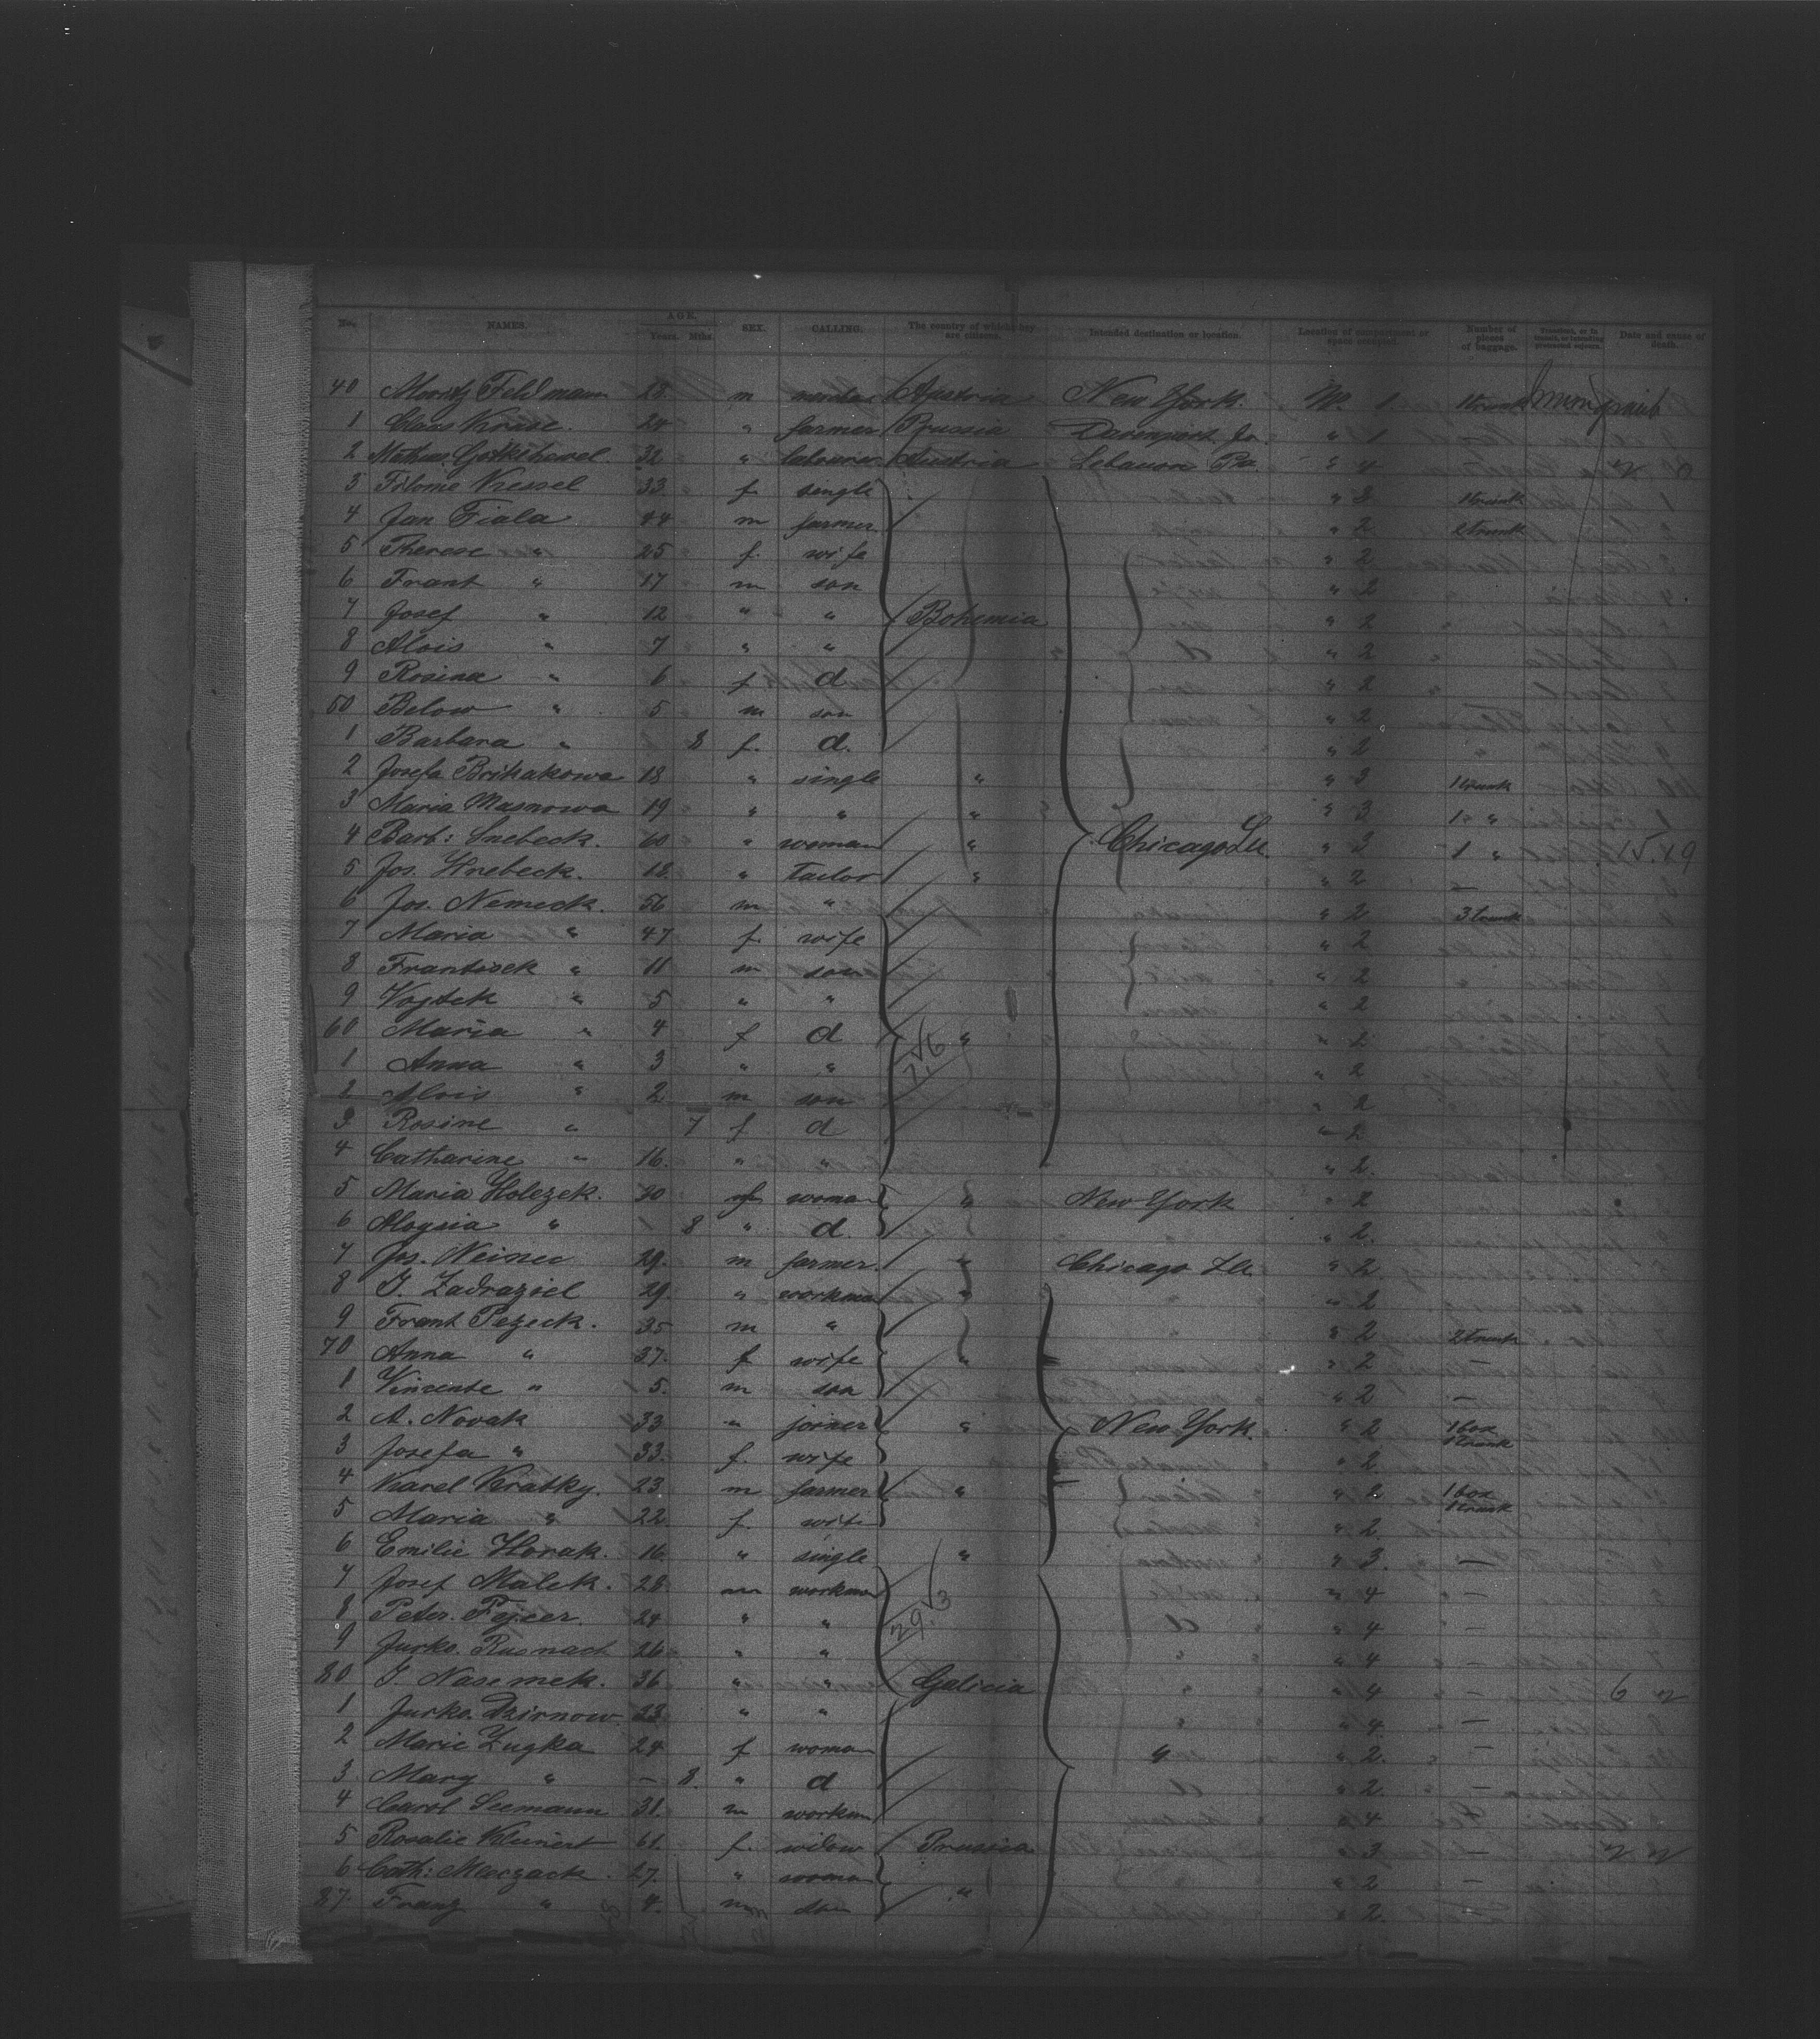 No. NAMES. AGE. Years. Mths. SEX. CALLING. The country of which they are citizens. Intended destination or location. Location of compartment or space occupied. Number of pieces of baggage. Transient, or in transit, or intending protracted sojourn. Date and cause of death.
40 Moritz Feldmann 18 m Austria New York. No. 1. 1 trunk
1 Claus Kruse. 24 " farmer Prussia Davenport Ja. " 1
2 32 " labourer Austria Lebanon Pa. " 4
3 Filome Kressel 33 f single " 3 1 trunk
4 Jan Fiala 44 m farmer " 2 2 trunk
5 Therese " 25 f. wife " 2
6 Frant " 17 m son " 2
7 Josef " 12 " " Bohemia " 2
8 Alois " 7 " " " 2
9 Rosina " 6 f d " 2
50 Below " 5 m son " 2
1 Barbara " 8 f. d. " 2
2 Josefa Brihakowa 18 " single " " 3 1 trunk
3 Maria Masnowa 19 " " " " 3 1 "
4 Barb: Snebeck. 60 " woman " Chicago Ill. " 3 1 " 15.19
5 Jos. Hnebeck. 18 " Tailor " " 2 —
6 Jos. Nemeck. 56 m " " 2 3 trunk
7 Maria " 47 f. wife " 2
8 Frantisek " 11 m son " 2
9 Vojtek " 5 " " " 2
60 Maria " 4 f d " " 2
1 Anna " 3 " " " 2
2 Alois " 2 m son " 2
3 Rosine " 7 f d " 2
4 Catharine " 16. " " " 2.
5 Maria Holezek. 30 f woman " New York " 2
6 Aloysia " 8 " d. " 2.
7 Jos. 29. m farmer. " Chicago Ill. " 2
8 J. Zadraziel 29 " workman " " 2
9 Frant Pezeck. 35 m " " 2 2 trunk
70 Anna " 37. f wife " " 2 —
1 Vincente " 5. m son " 2 —
2 A. Novak 33 " joiner " New York " 2 1 box 1 trunk
3 Josefa " 33. f. wife " 2.
4 Karel Kratky. 23 m farmer " " 2 1 box 1 trunk
5 Maria " 22. f. wife " 2.
6 Emilie Horak. 16 " single " " 3. —
7 Josef Malek. 28 m workman " 4 —
8 Peter. Fejcer. 24 " " " 4 —
9 Jurko. Rusnach 26 " " " 4 —
80 J. Nasemek. 36 " " Galicia " 4 — 6
1 Jurko. Dzirnow 23 " " " 4. —
2 Marie Zugka 24 f woman " " 2. —
3 Mary " — 8. " d " 2. —
4 Carol Seemann 31. m workman " 4 —
5 Rosalie Kleinert 61. f. widow Prussia. " 3 —
6 Cath: Merczack. 27. " woman " 2 —
87. Franz " 4. m " " 2.